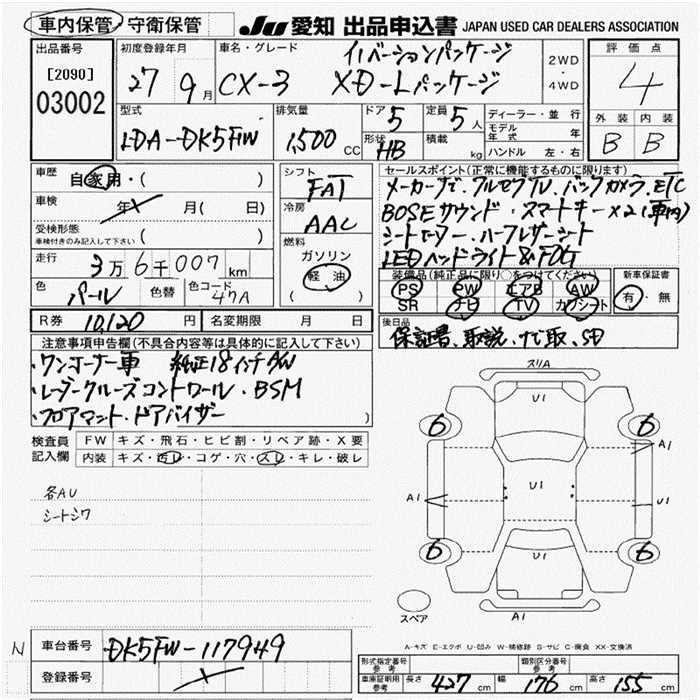 車内保管・守衛保管 JU 愛知 出品申込書 JAPAN USED CAR DEALERS ASSOCIATION
出品番号 初度登録年月 車名・グレード イノベーションパッケージ 2WD・4WD 評価点
[2090] 27 9月 CX-3 XD-Lパッケージ 4
03002
型式 排気量 ドア 5 定員 5人 ディーラー・並行 外装 内装
LDA-DK5FW 1,500 CC 形状 HB 積載 kg モデル年式 年 B B
ハンドル 左・右
車歴 自家用・( ) シフト FAT セールスポイント(正常に機能するものに限ります)
車検 年 月( 日) 冷房 AAC メーカーナビ.フルセグTV.バックカメラ.ETC
受検形態 BOSEサウンド・スマートキー×2(車内)
車検付きのみ記入して下さい ( ) 燃料 シートヒーター・ハーフレザーシート
走行 3万6千007km ガソリン LEDヘッドライト&FOG
色 パール 色替 色コード 47A 軽油 ( )
装備品(純正品に限り○をつけてください) 新車保証書
PS PW エアB AW 有・無
SR ナビ TV カワシート
R券 10,120円 名変期限 月 日 後日品
保証書、取説、ナビ取、SD
注意事項申告欄(不具合内容等は具体的に記入して下さい)
・ワンオーナー車 純正18インチAW
・レーダークルーズコントロール・BSM
・フロアマット.ドアバイザー
検査員記入欄 FW キズ・飛石・ヒビ割・リペア跡・X要
内装 キズ・汚レ・コゲ・穴・スレ・キレ・破レ
各AU
シートシワ
スリA
U1
6 6
A1
A1 U1 U1
6 6
U1
スペア
A1
A-キズ E-エクボ U-凹み W-補修跡 S-サビ C-腐食 XX-交換済
N 車台番号 DK5FW-117949
登録番号
形式指定番号 参考 類別区分番号 参考
車庫証明用 参考 長さ 427cm 幅 176cm 高さ 155cm